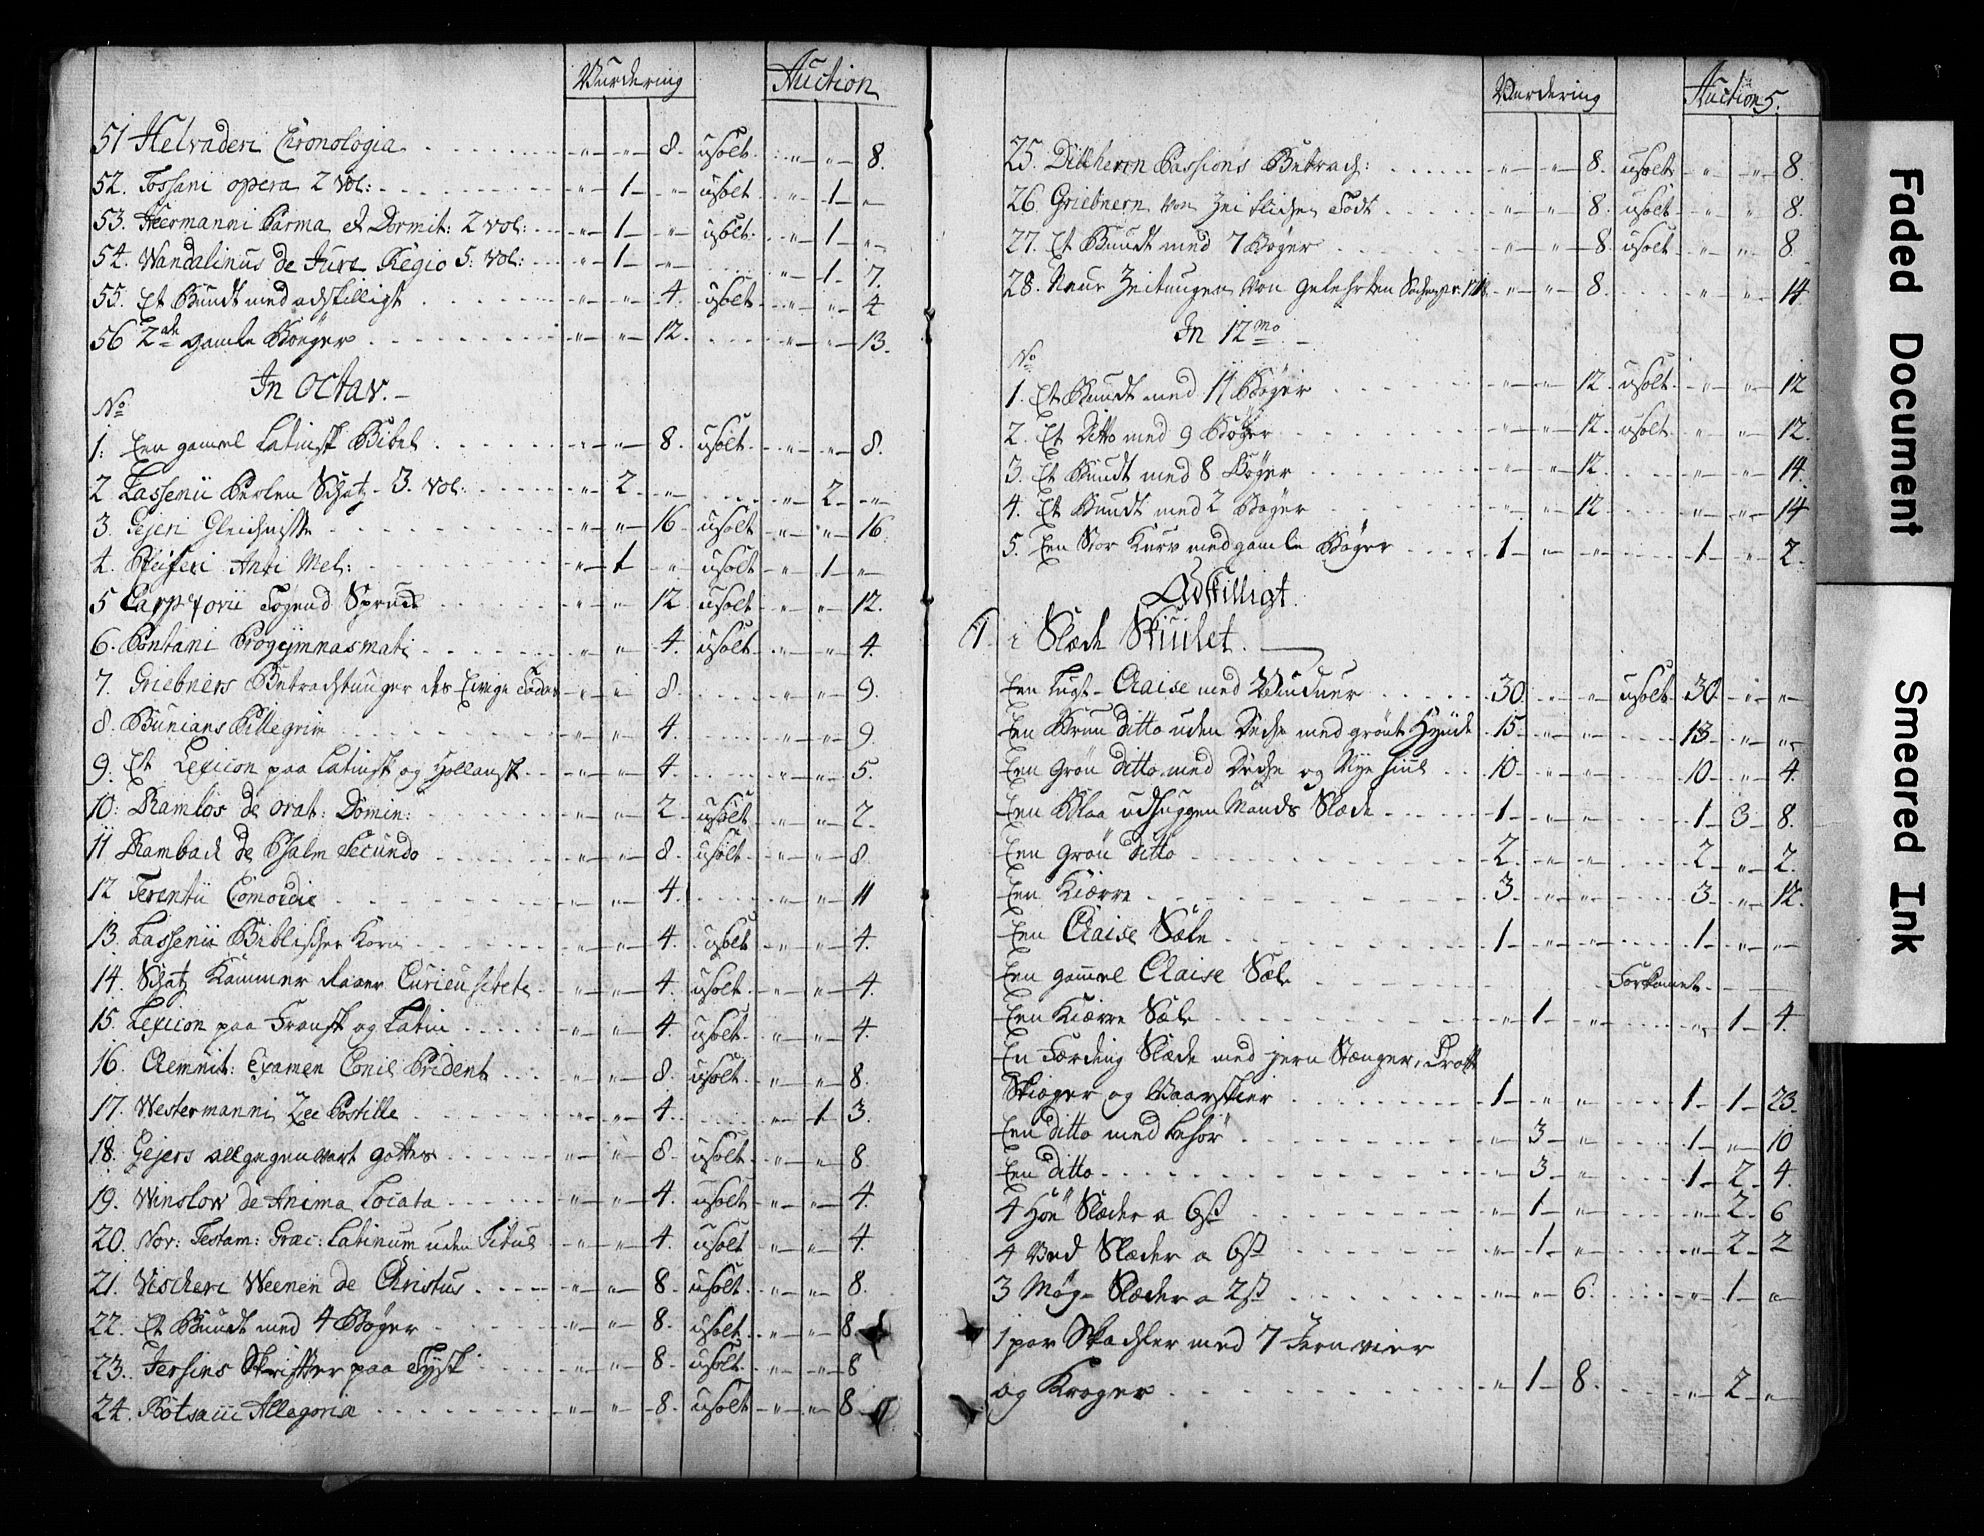 Vurdering Auction
51 Helvaderi Chronologia - „ - „ - 8. usolt - „ - „ - 8.
52. Tossani opera 2 vol: - „ - 1 - „ - usolt - „ - 1 - „
53. Heermanni Parma et Dormit: 2 vol: - „ - 1 - „ - usolt - „ - 1 - „
54. Wandalinus de Jure Regio 5: vol: - „ - 1 - „ - „ - 1 - 7.
55. Et Bundt med adskilligt - „ - „ - 4. usolt - „ - „ - 4
56 2de gamle Bøger - „ - „ - 12. - „ - „ - 13.
In Octav.
No
1. Een gamel Latinsk Bibel - „ - „ - 8. usolt - „ - „ - 8.
2 Lassenii Perlen Schatz - 3. vol: - „ - 2 - „ - „ - 2 - „
3. Gejeri Gleichnisse - „ - „ - 16. usolt - „ - „ - 16.
4. Pfeiferi Anti Mel: - „ - 1 - „ usolt - „ - 1 - „
5 Carpzovii Tugend Spruche - „ - „ - 12. usolt - „ - „ - 12.
6. Pontani Progÿmnasmati - „ - „ - 4. usolt - „ - „ - 4.
7. Griebners Betrachtunger des Ewige Todes - „ - „ - 8. - „ - „ - 9.
8. Bunians Pillegrim - „ - „ - 4. - „ - „ - 9.
9. Et Lexicon paa Latinsk og Hollansk - „ - „ - 4. - „ - „ - 5.
10. Ramlos de orat: Domin: - „ - „ - 2 usolt - „ - „ - 2.
11 Rambach de Psalm Secundo - „ - „ - 8. usolt - „ - „ - 8.
12 Terentii Comoedie - „ - „ - 4. - „ - „ - 11
13. Lassenii Biblischer Kern - „ - „ - 4. usolt - „ - „ - 4.
14. Schatz Kammer Raaer Curieusitete - „ - „ - 4. usolt - „ - „ - 4.
15. Lexicon paa Fransk og Latin - „ - „ - 4. usolt - „ - „ - 4.
16. Chemnit: Examen Conil Trident - „ - „ - 8. usolt - „ - „ - 8.
17. Westermanni Zee Postille - „ - „ - 4. - „ - 1 3.
18. Gejers allgegenwart Gottes - „ - „ - 8. usolt - „ - „ 8.
19. Winslow de Anima Locata - „ - „ - 4. usolt - „ - „ - 4.
20. Nov: Testam: Græc: Latinum uden Titul - „ - „ - 4. usolt - „ - „ - 4.
21. Vischeri Weenen de Christus - „ - „ - 8. usolt - „ - „ - 8.
22. Et Bundt med 4 Bøger - „ - „ - 8. usolt - „ - „ - 8.
23. Jersins Skrifter paa Tysk - „ - „ - 8. usolt - „ - „ - 8
24. Allegoria - „ - „ - 8. usolt - „ - „ - 8
Vurdering Auction 5.
25. Dilherrn Passions Betrach: - „ - „ - 8. usolt - „ - „ - 8.
26. Griebnern von Zeitlichen Todt - „ - „ - 8. usolt - „ - „ 8.
27. Et Bundt med 7 Bøger - „ - „ - 8. usolt - „ - „ 8.
28. Neue Zeitungen von gelehrten - „ - „ - 8. - „ - „ - 14
In 12mo.
No
1. Et Bundt med 11 Bøger - „ - „ - 12. usolt - „ - „ 12
2. Et Ditto med 9 Bøger - „ - „ - 12. usolt - „ - „ - 12.
3. Et Bundt med 8 Bøger - „ - „ - 12. - „ - „ - 14.
4. Et Bundt med 2 Bøger - „ - „ - 12 - „ - „ - 14
5. Een Stor Kurv med gamle Bøger - 1 - „ - „ - 1 - „ - 2.
Adskilligt.
1 i Slæde Skiulet.
Een Lugt-Chaise med Vinduer - 30. - „ - „ usolt. 30. - „ - „
Een Brun Ditto uden Deche med grønt Hynde - 15. - „ - „ - 13 - „ - „
Een Grøn Ditto med Deche og Nye Hiul - 10 - „ - „ - 10 - „ - 4.
Een Blaa udhuggen Mands Slæde - 1 - „ - „ - 1 - 3 - 8.
Een grøn Ditto - 2. - „ - „ - 2 - „ - 2.
Een Kiærre - 3 - „ - „ - 3 - „ - 12.
Een Chaise Sæle - 1 - „ - „ - 1 - „ - „
Een gamel Chaise Sæle Forkomet
Een Kiærre Sæle - „ - 1 - „ - „ - 1 - 4
En Færding Slæde med jern Stænger,
Skioger og - 1 - „ - „ - 1 - 1 - 23.
Een Ditto med behør - „ - 3 - „ - 1 - „ - 10
Een Ditto - „ - 3 - „ - 1 - 2 - 4.
4 Høe Slæder a 6s - „ - 1 - „ - „ - 2 - 6
4 Ved Slæder a 6s - „ - 1 - „ - „ - 2 - 2
3 Møg-Slæder a 2s - „ - „ 6. - „ - 1 - „
1 par Skachler med 7
og Kroger - „ - 1 - 8. - „ - 2 - „
Faded Document
Smeared Ink